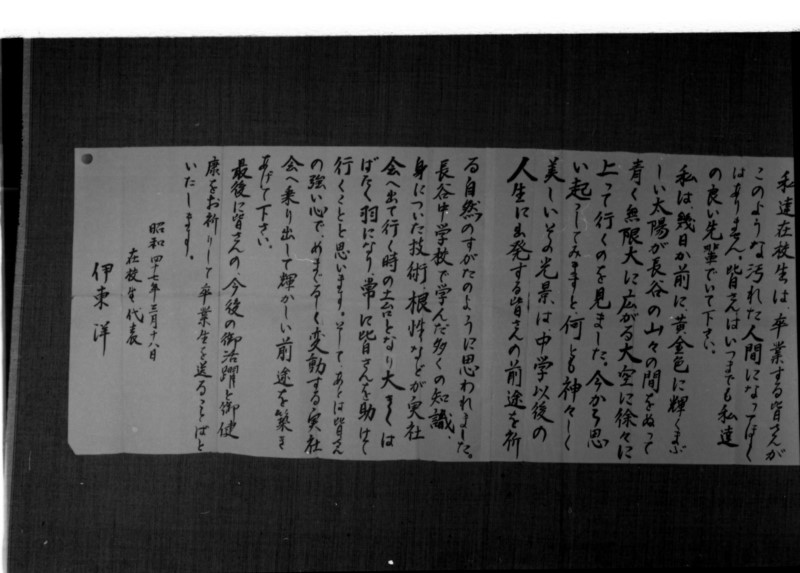 私達在校生は、卒業する皆さんが
このような汚れた人間になってほしく
はありません。皆さんはいつまでも私達
の良い先輩でいて下さい。
私は幾日か前に、黄金色に輝くまぶ
しい太陽が長谷の山々の間をぬって
青く無限大に広がる大空に徐々に
上って行くのを見ました。今から思
い起こしてみますと何とも神々しく
美しいその光景は、中学以後の
人生に出発する皆さんの前途を祈
る自然のすがたのように思われました。
長谷中学校で学んだ多くの知識、
身についた技術、根性などが実社
会へ出て行く時の土台となり大きくは
ばたく羽になり、常に皆さんを助けて
行くことと思います。そして、あとは皆さん
の強い心で、めまぐるしく変動する実社
会へ乗り出して輝かしい前途を築き
あげて下さい。
最後に皆さんの、今後の御活躍と御健
康をお祈りして卒業生を送ることばと
いたします。
昭和四十七年三月十八日
在校生代表
伊東洋